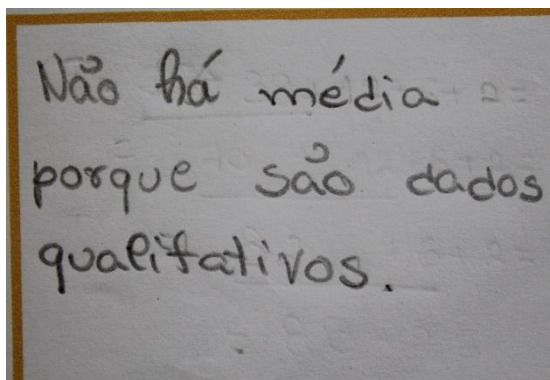 Não há média
porque são dados
qualitativos.